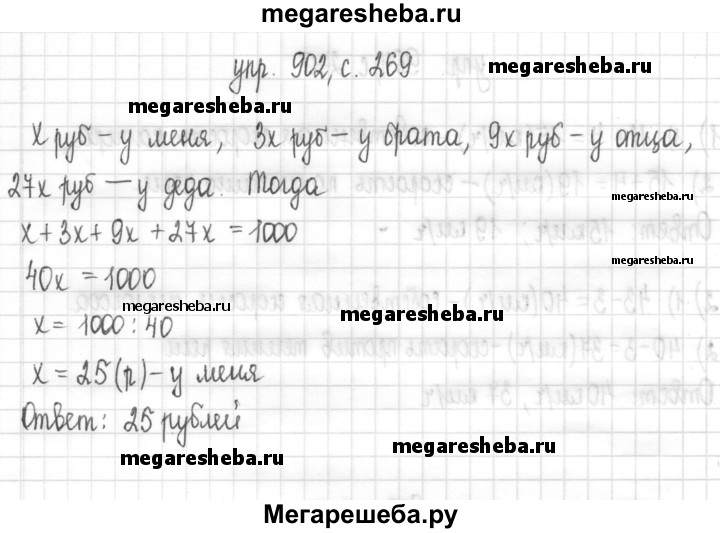 megaresheba.ru
упр. 902, с. 269 megaresheba.ru
megaresheba.ru
x руб – у меня, 3x руб – у брата, 9x руб – у отца,
27x руб – у деда. Тогда
megaresheba.ru
x + 3x + 9x + 27x = 1000
megaresheba.ru
40x = 1000
megaresheba.ru
megaresheba.ru
x = 1000 : 40
x = 25 (р) – у меня
Ответ: 25 рублей
megaresheba.ru
megaresheba.ru
Мегарешеба.ру